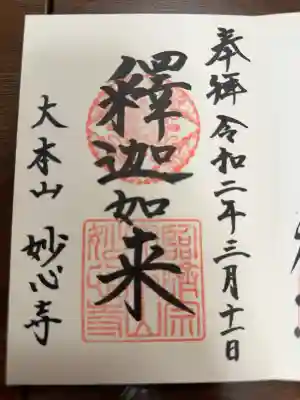 奉拝 令和二年三月十一日
釋迦如来
大本山 妙心寺